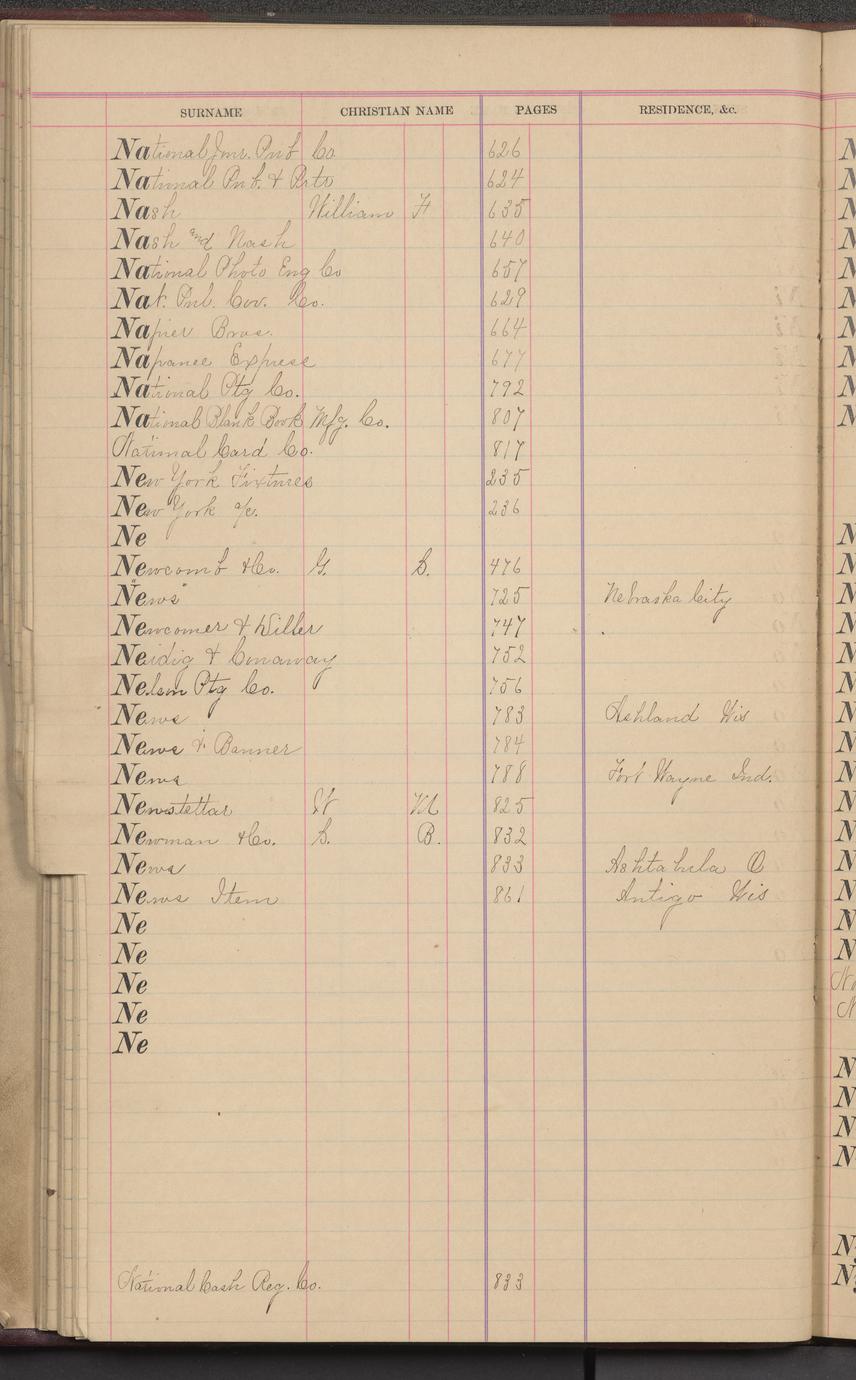 SURNAME CHRISTIAN NAME PAGES RESIDENCE, &c.
National Jour. Pub Co 626
National Pub. & Prto 624
Nash William H 635
Nash and Nash 640
National Photo Eng Co 657
Nat. Pub. Cov. Co. 629
Napier Bros. 664
Napanee Express 677
National Ptg Co. 792
National Blank Book Mfg. Co. 807
National Card Co. 817
New York Fixtures 235
New York a/c. 236
Ne
Newcomb & Co. G. S. 476
"News" 725 Nebraska City
Newcomer & Willer 747
Neidig & Conaway 752
Nelson Ptg Co. 756
News 783 Ashland Wis
News & Banner 784
News 788 Fort Wayne Ind.
Newstettar W M 825
Newman & Co. S. B. 832
News 833 Ashtabula O
News Item 861 Antigo Wis
Ne
Ne
Ne
Ne
Ne
National Cash Reg. Co. 833